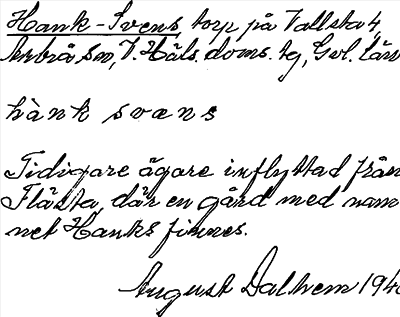 Hank-Svens, torp på Vallsta 4,
Arbrå sn, V. Häls. doms. tg, Gvl. län
hànk svæns
Tidigare ägare inflyttad från
Flästa, där en gård med nam
net Hanks finnes.
August Dalhem 1940